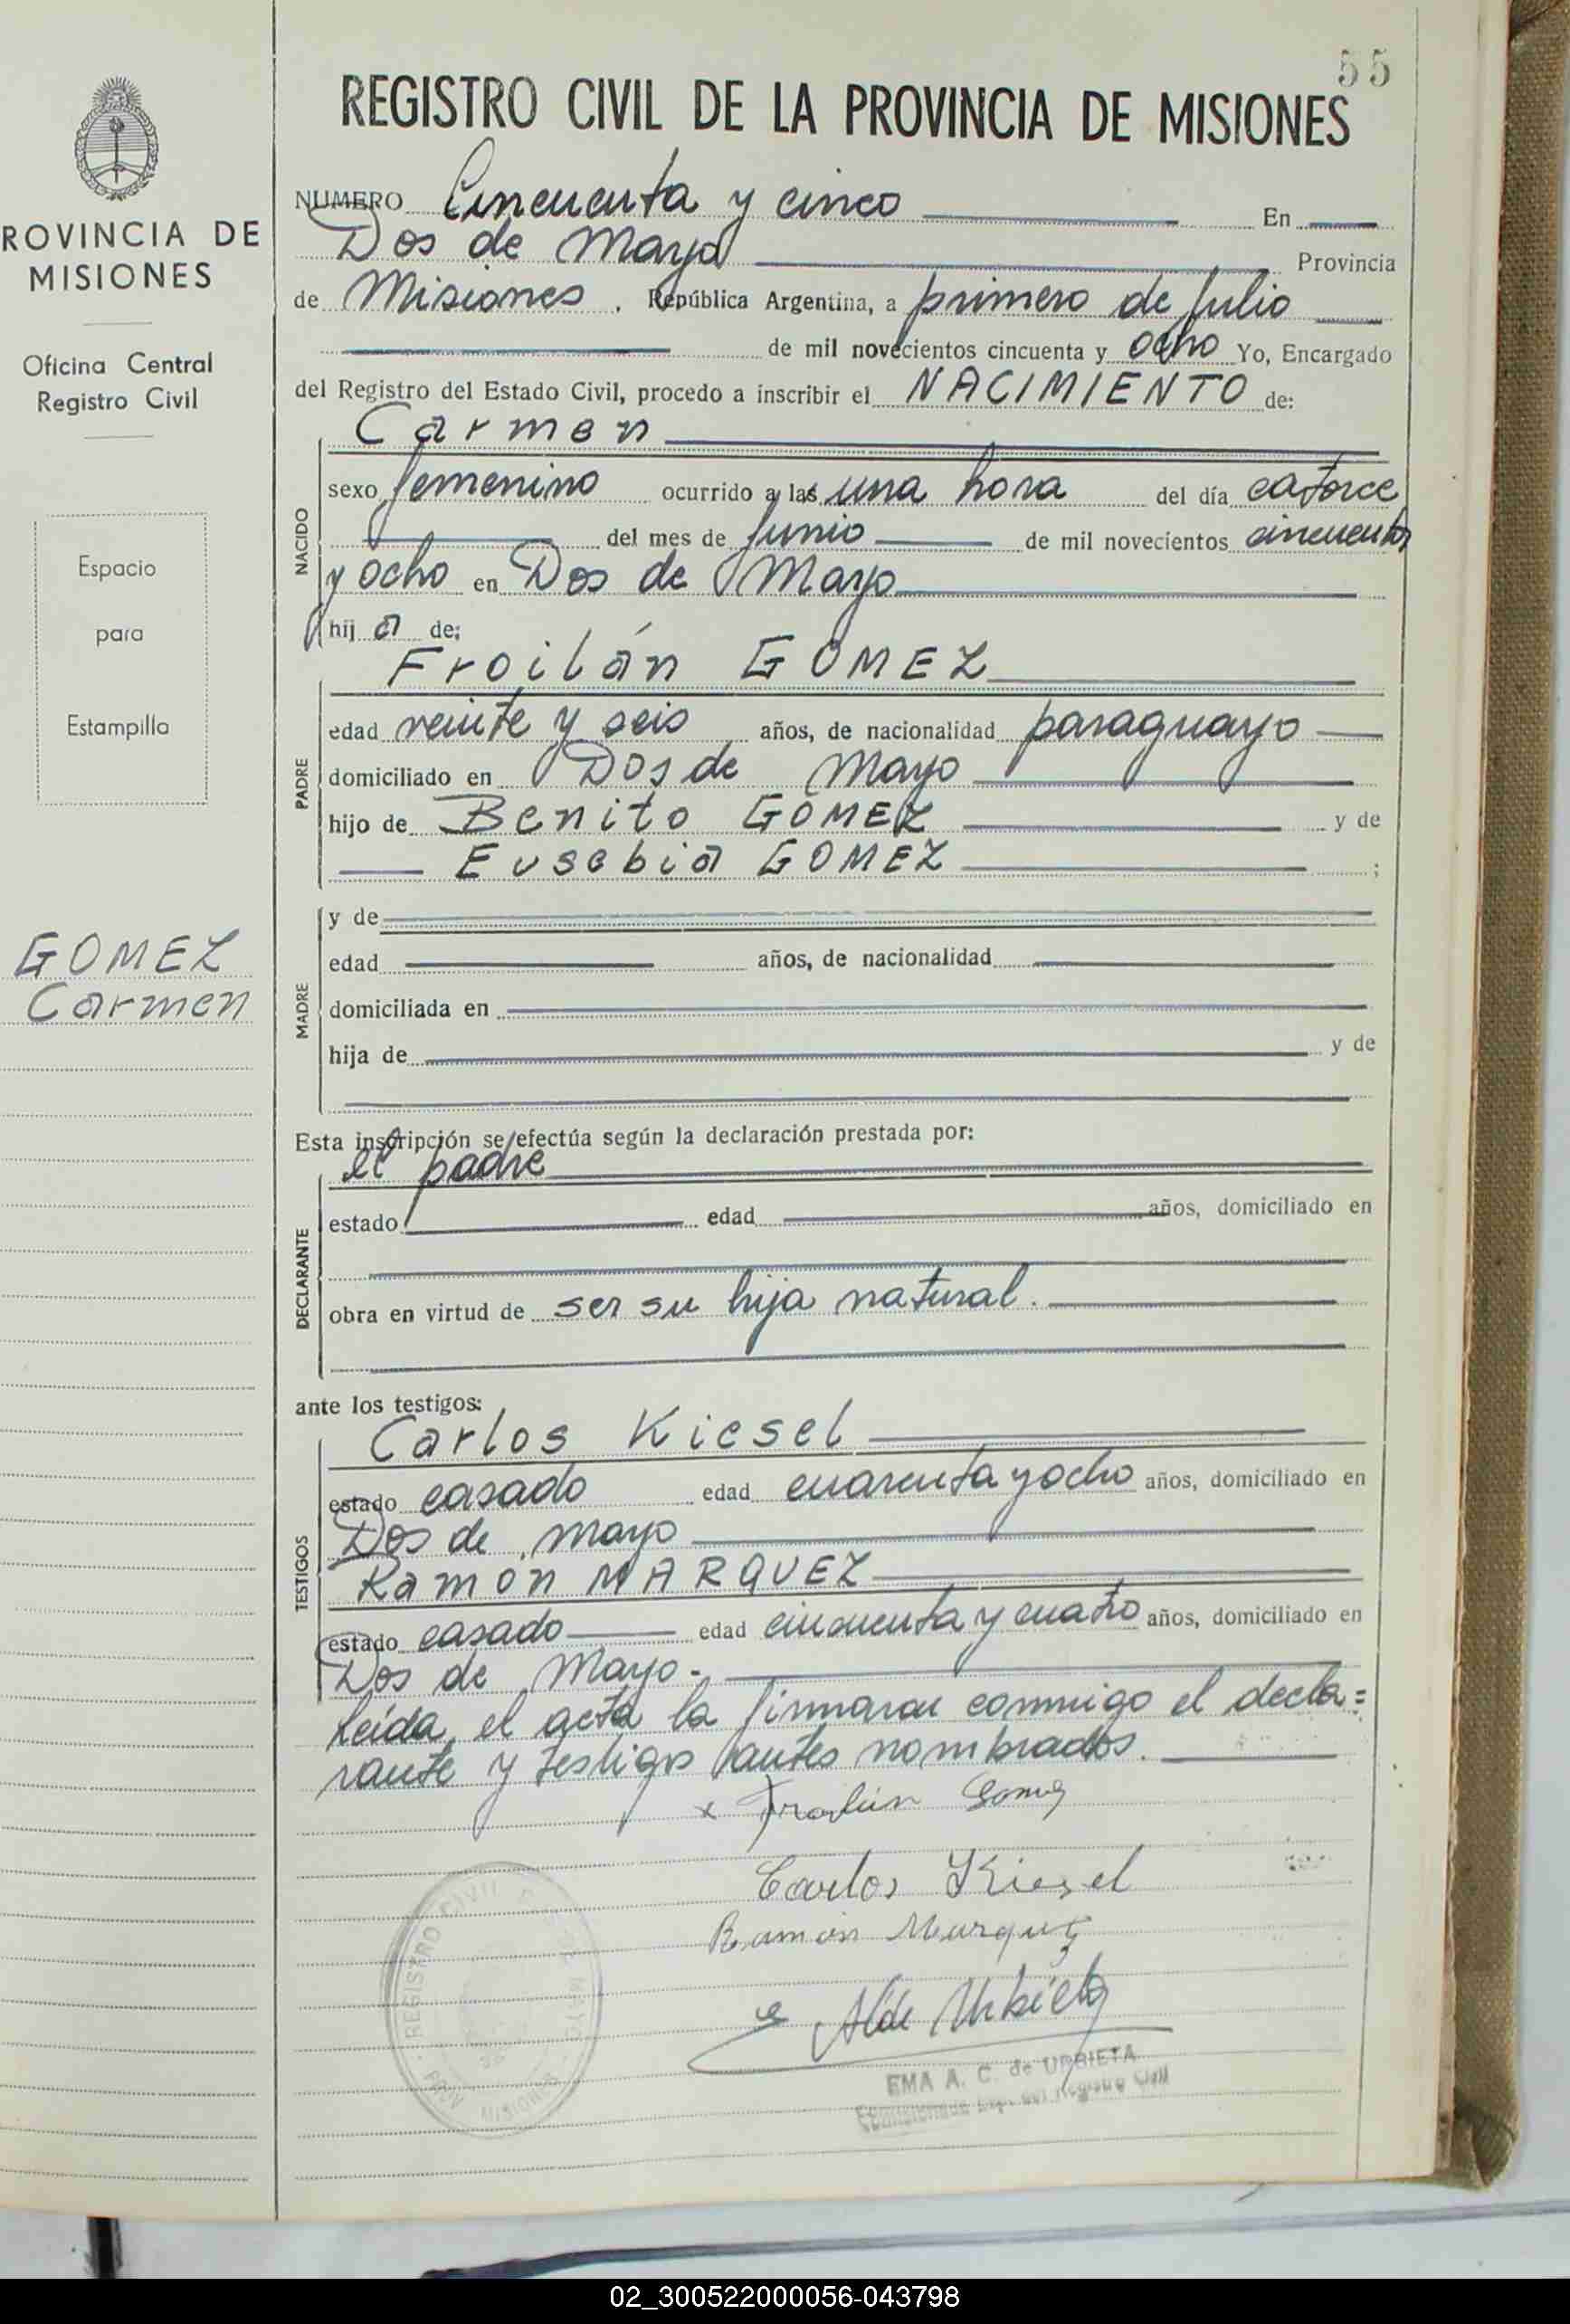 55
REGISTRO CIVIL DE LA PROVINCIA DE MISIONES
ROVINCIA DE
MISIONES
Oficina Central
Registro Civil
Espacio
para
Estampilla
GOMEZ
Carmen
NUMERO Cincuenta y cinco En
Dos de Mayo Provincia
de Misiones, República Argentina, a primero de Julio
de mil novecientos cincuenta y ocho Yo, Encargado
del Registro del Estado Civil, procedo a inscribir el NACIMIENTO de:
NACIDO
Carmen
sexo femenino ocurrido a las una hora del día catorce
del mes de Junio de mil novecientos cincuenta
y ocho en Dos de Mayo
hij a de:
PADRE
Froilán GOMEZ
edad veinte y seis años, de nacionalidad paraguayo
domiciliado en Dos de Mayo
hijo de Benito GOMEZ y de
Eusebia GOMEZ ;
MADRE
y de
edad años, de nacionalidad
domiciliada en
hija de y de
Esta inscripción se efectúa según la declaración prestada por:
DECLARANTE
el padre
estado edad años, domiciliado en
obra en virtud de ser su hija natural.
ante los testigos:
TESTIGOS
Carlos Kiesel
estado casado edad cuarenta y ocho años, domiciliado en
Dos de Mayo
Ramón MARQUEZ
estado casado edad cincuenta y cuatro años, domiciliado en
Dos de Mayo.
Leída el acta la firmaron conmigo el decla=
rante y testigos antes nombrados.
x Froilán Gomez
Carlos Kiesel
Ramón Marquez
Alde Urbieta
REGISTRO CIVIL DOS DE MAYO
PROV. MISIONES
EMA A. C. de URBIETA
del Registro Civil
02_300522000056-043798